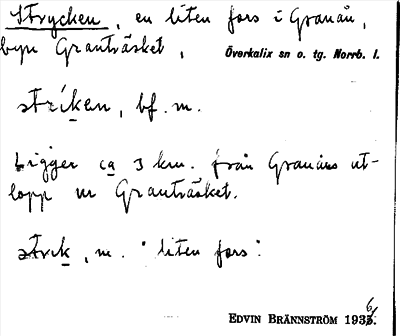 Strycken, en liten fors i Granån,
byn Granträsket,
Överkalix sn o. tg. Norrb. l.
stríken, bf. m.
Ligger ca 3 km. från Granåns ut-
lopp ur Granträsket.
strik, m. "liten fors".
EDVIN BRÄNNSTRÖM 1936.